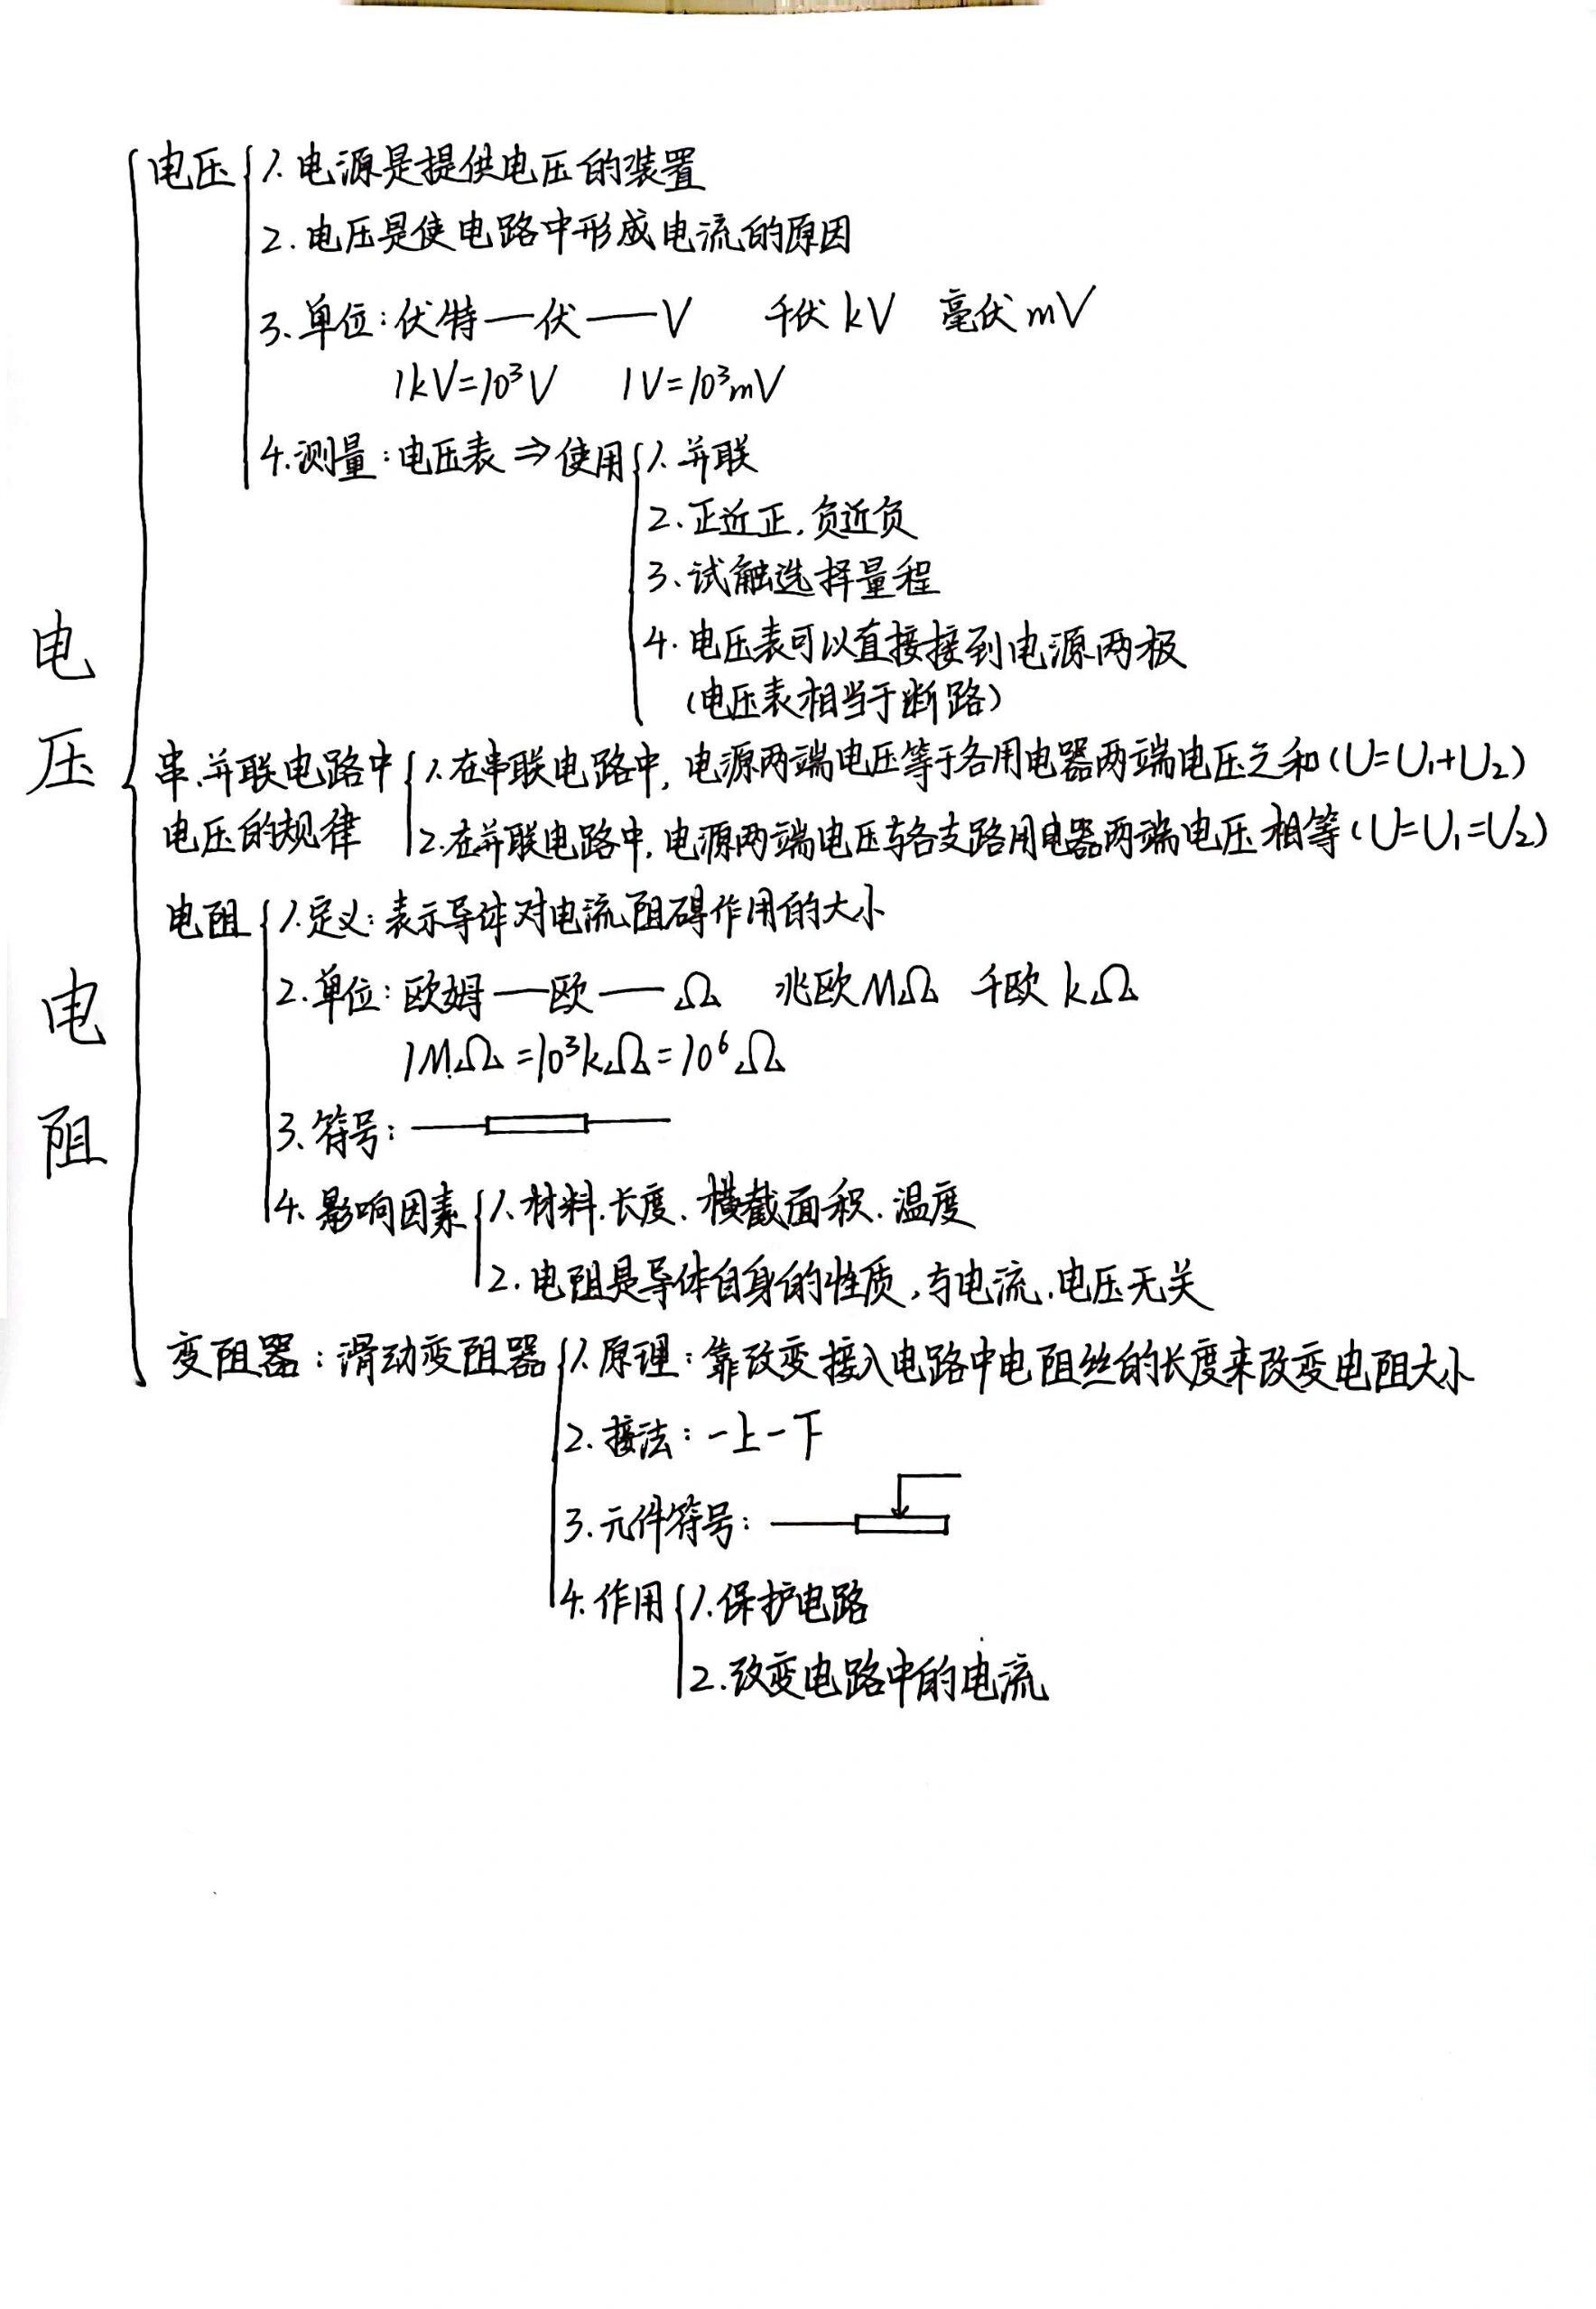 电压 1.电源是提供电压的装置
2.电压是使电路中形成电流的原因
3.单位:伏特—伏—V 千伏kV 毫伏mV
1kV=10³V 1V=10³mV
4.测量:电压表⇒使用 1.并联
2.正近正,负近负
3.试触选择量程
4.电压表可以直接接到电源两极
(电压表相当于断路)
电压电阻
串.并联电路中 1.在串联电路中,电源两端电压等于各用电器两端电压之和(U=U₁+U₂)
电压的规律 2.在并联电路中,电源两端电压与各支路用电器两端电压相等(U=U₁=U₂)
电阻 1.定义:表示导体对电流阻碍作用的大小
2.单位:欧姆—欧—Ω 兆欧MΩ 千欧kΩ
1MΩ=10³kΩ=10⁶Ω
3.符号:
4.影响因素 1.材料.长度.横截面积.温度
2.电阻是导体自身的性质,与电流.电压无关
变阻器:滑动变阻器 1.原理:靠改变接入电路中电阻丝的长度来改变电阻大小
2.接法:一上一下
3.元件符号:
4.作用 1.保护电路
2.改变电路中的电流